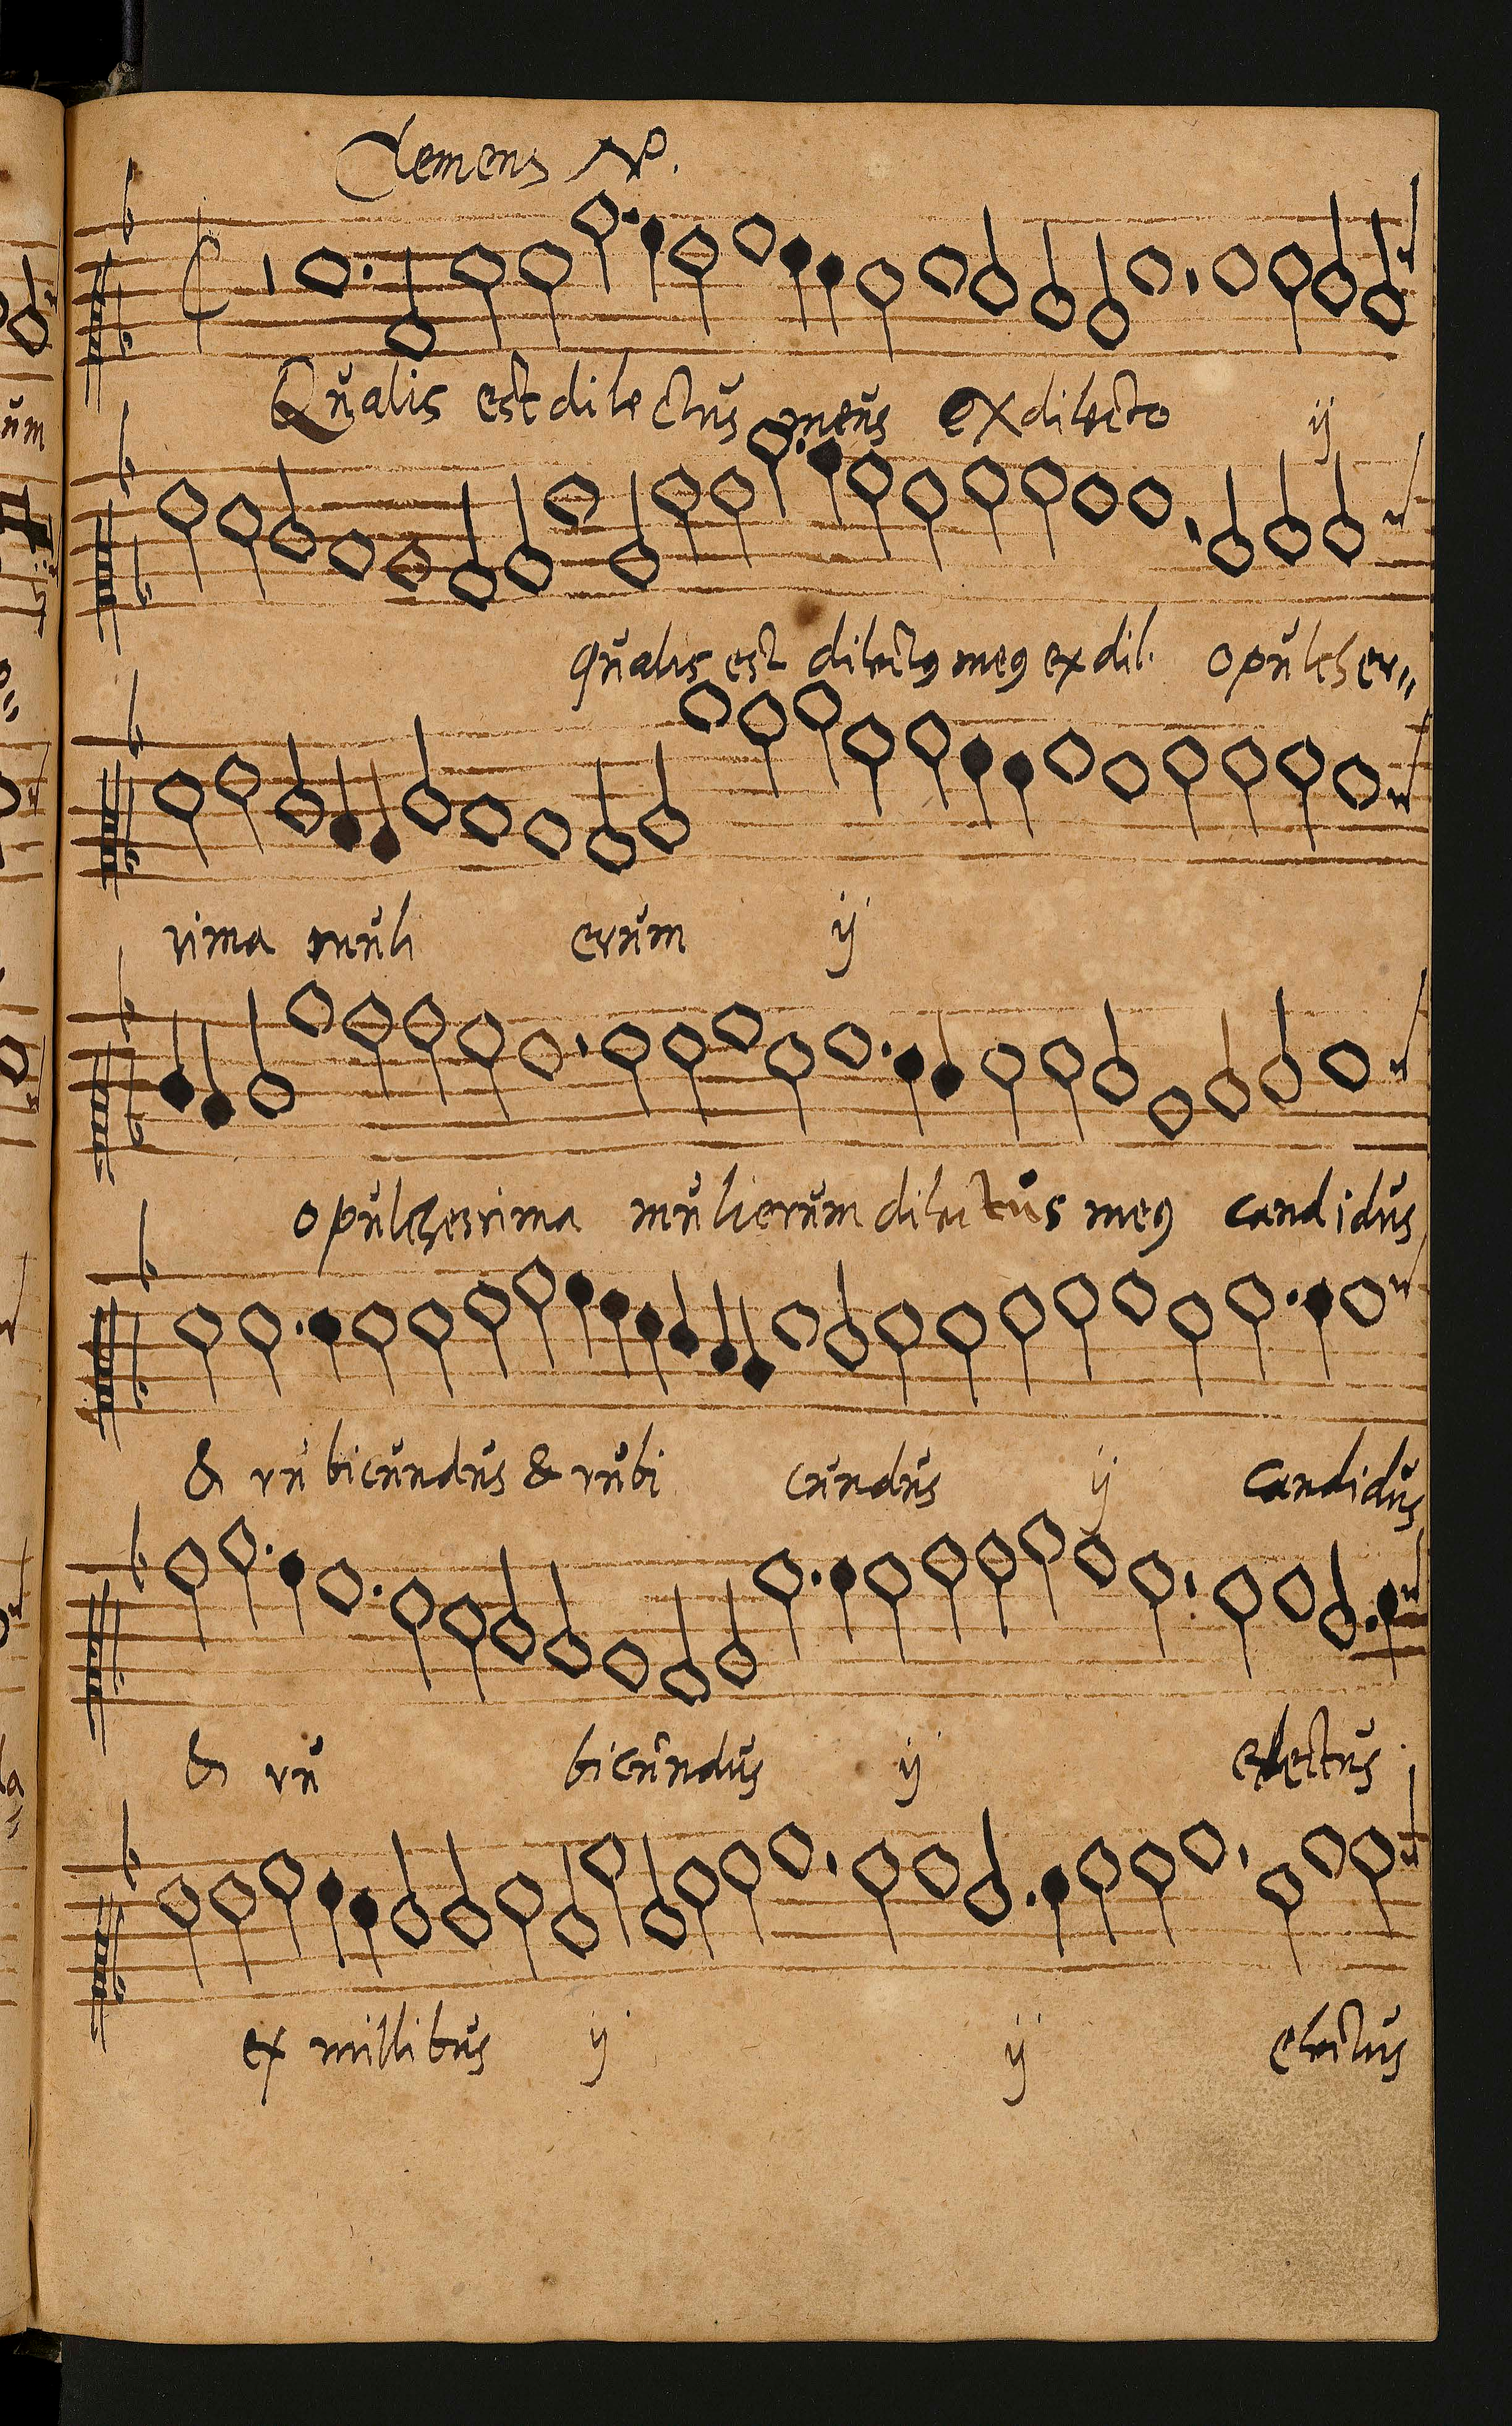 Clemens NP.
Qualis est dilectus meus ex dilecto ij
qualis est dilectꝰ meꝰ ex dil. o pulcher„
rima muli erum ij
o pulcherrima mulierum dilectus meꝰ candidus
& rubicundus & rubi cundus ij candidus
& ru bicundus ij electus
ex millibus ij ij electus